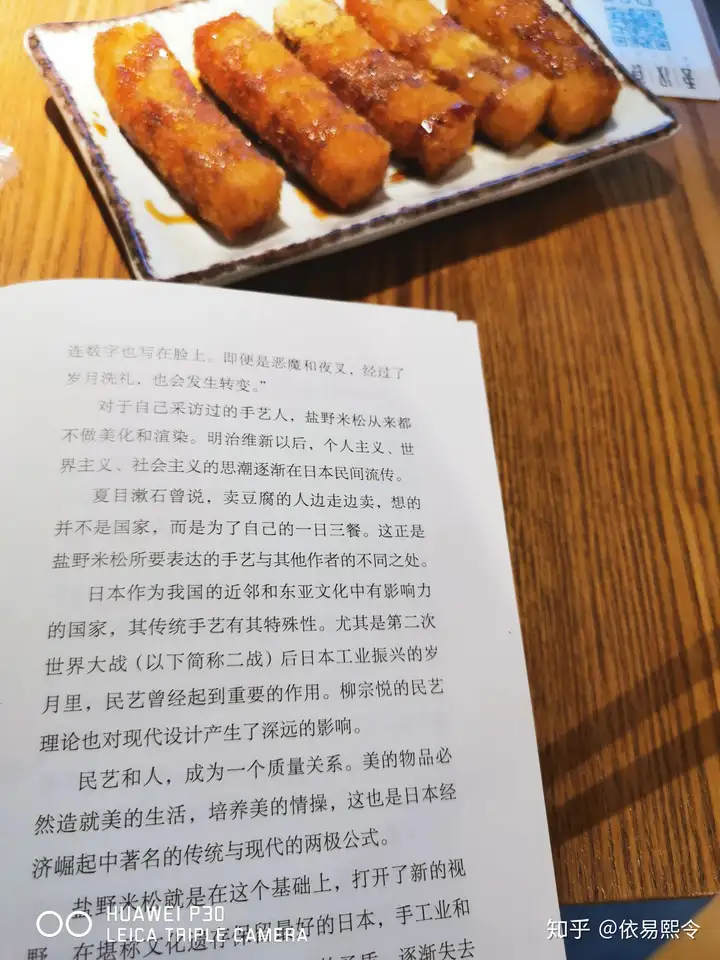 连数字也写在脸上。即便是恶魔和夜叉，经过了
岁月洗礼，也会发生转变。”
对于自己采访过的手艺人，盐野米松从来都
不做美化和渲染。明治维新以后，个人主义、世
界主义、社会主义的思潮逐渐在日本民间流传。
夏目漱石曾说，卖豆腐的人边走边卖，想的
并不是国家，而是为了自己的一日三餐。这正是
盐野米松所要表达的手艺与其他作者的不同之处。
日本作为我国的近邻和东亚文化中有影响力
的国家，其传统手艺有其特殊性。尤其是第二次
世界大战（以下简称二战）后日本工业振兴的岁
月里，民艺曾经起到重要的作用。柳宗悦的民艺
理论也对现代设计产生了深远的影响。
民艺和人，成为一个质量关系。美的物品必
然造就美的生活，培养美的情操，这也是日本经
济崛起中著名的传统与现代的两极公式。
盐野米松就是在这个基础上，打开了新的视
野。在堪称文化遗存保留最好的日本，手工业和
逐渐失去
HUAWEI P30
LEICA TRIPLE CAMERA
知乎 @依易熙令